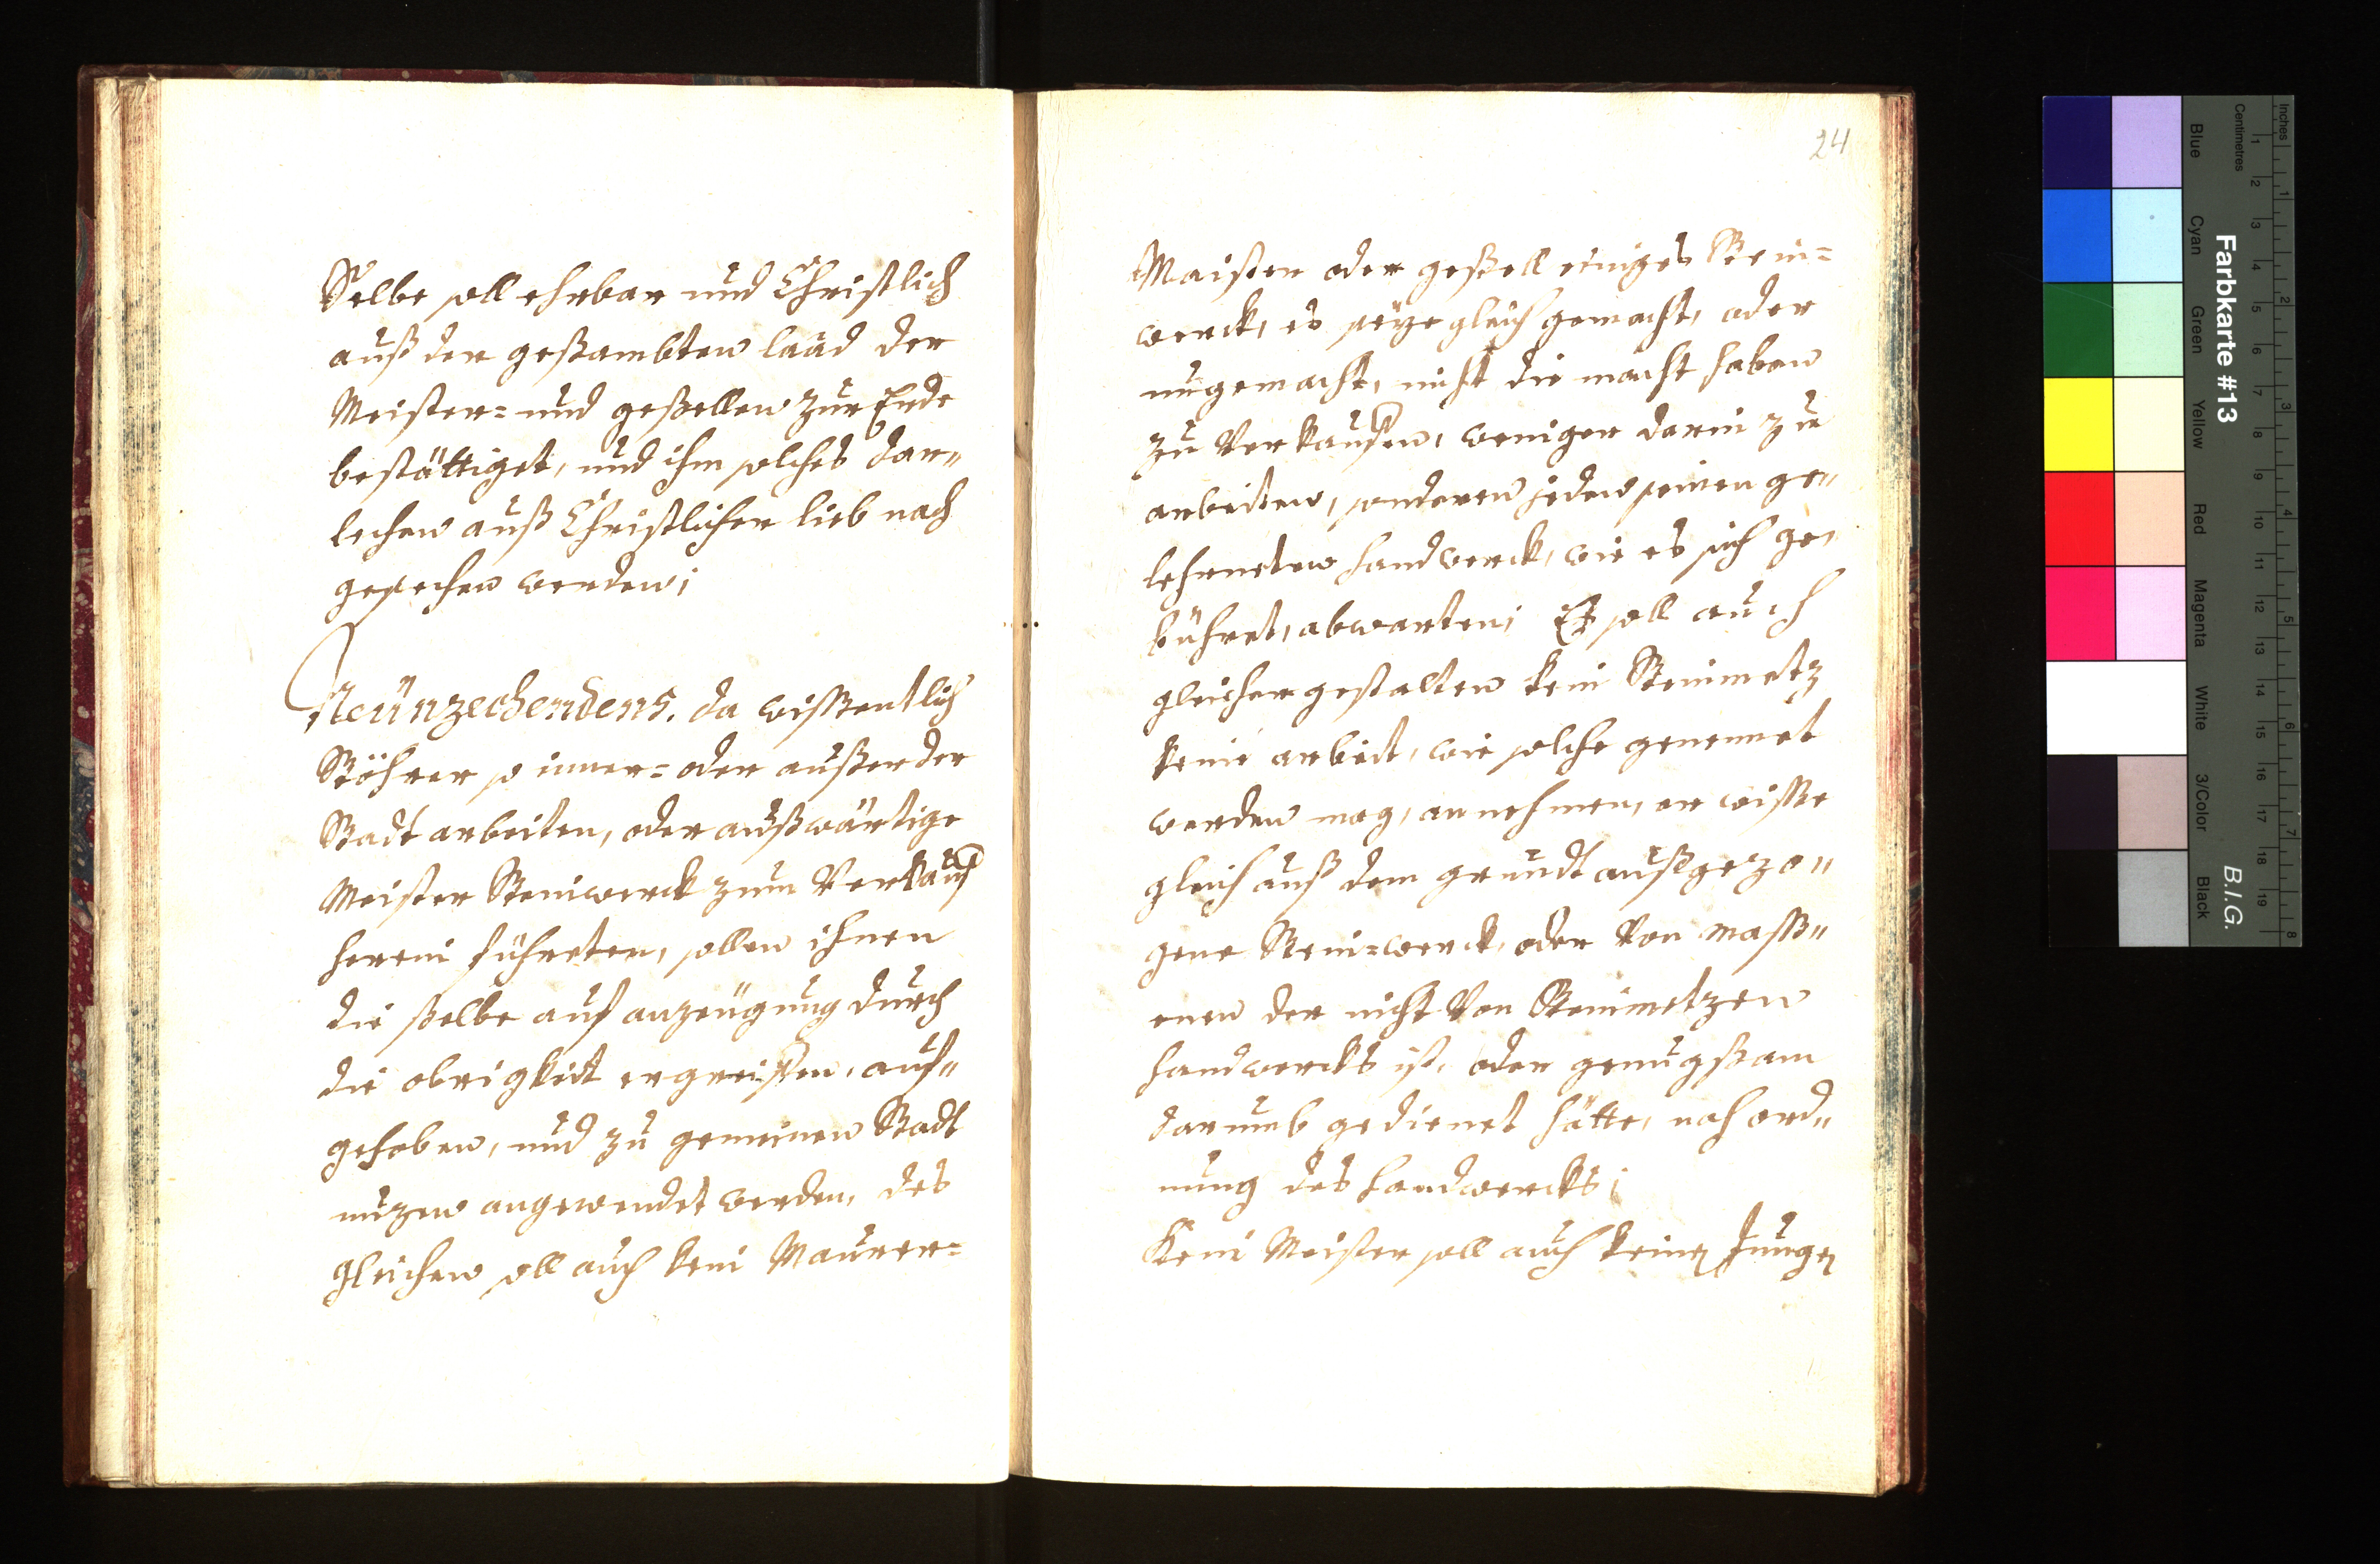 Selbe soll ehrbar und Christlich
auß der gesambten laad der
Meister= und gesellen zur Erde
bestättiget, und ihm solches dar„
lechen auß Christlicher lieb nach
gesechen werden;
Neünzechendens. da wissentlich
Störer so inner= oder ausser der
Stadt arbeiten, oder außwärtige
Meister Steinwerck zum Verkauf
herein führeten, sollen ihnen
die selbe auf anzeügung durch
die obrigkeit ergreiffen, auf„
gehoben, und zu gemeinen Stadt
nuzen angewendet werden, des
gleichen soll auch kein Maurer=
24
Maister oder gesell einiges Stein=
werck, es seye gleich gemacht, oder
ungemacht, nicht die macht haben
zu Verkaufen, weniger darin zu
arbeiten, sonderen jeder seinen ge„
lehrneten handwerck, wie es sich ge„
bühret, abwarten; Es soll auch
gleicher gestalten kein Steinmetz
keine arbeit, wie solche genennet
werden mag, annehmen, er wisse
gleich auß dem grundt außgezo„
gene Stein=werck, oder Von
enen der nicht Von Steinmetzen
handwercks ist, oder genugsam
darumb gedienet hätte, nach ord„
nung des handwercks;
Kein Meister soll auch keinen Jungen
Farbkarte #13
B.I.G.
Inches
Centimetres
Blue
Cyan
Green
Yellow
Red
Magenta
White
3/Color
Black
1 2 3 4 5 6 7 8 9 10 11 12 13 14 15 16 17 18 19
1 2 3 4 5 6 7 8